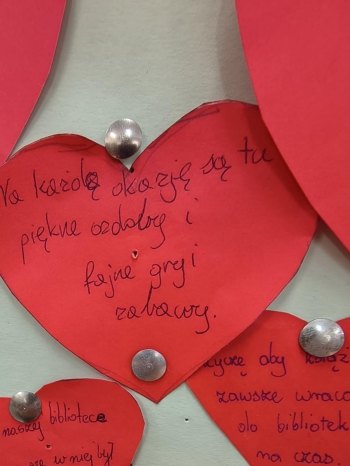 Na każdą okazję są tu
piękne ozdoby i
fajne gry i
zabawy.
życzę aby książ
zawsze wraca
do bibliotek
na czas.
naszej bibliotece
się w niej być